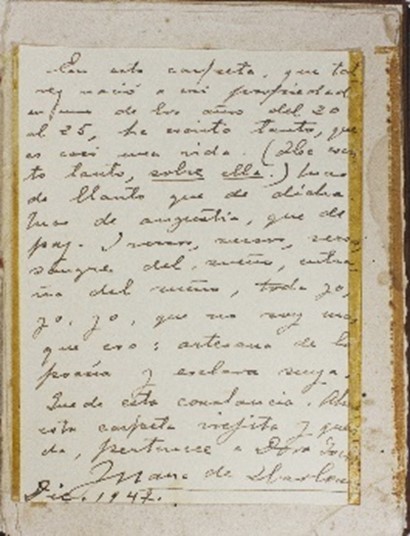 En esta carpeta, que tal
vez nació a mi propiedad
en uno de los años del 20
al 25, he escrito tanto, que
es casi una vida. (He escri
to tanto, sobre ella.) Mas
de llanto que de dicha.
Mas de angustia, que de
paz. Y versos, versos, versos,
sangre del sueño, entra
ña del sueño, toda yo,
yo, yo, que no soy mas
que eso: artesana de la
poesía y esclava suya.
Quede esta constancia.
esta carpeta viejita y
da, pertenece a Dora
Juana de Ibarbou
Dic. 1947.